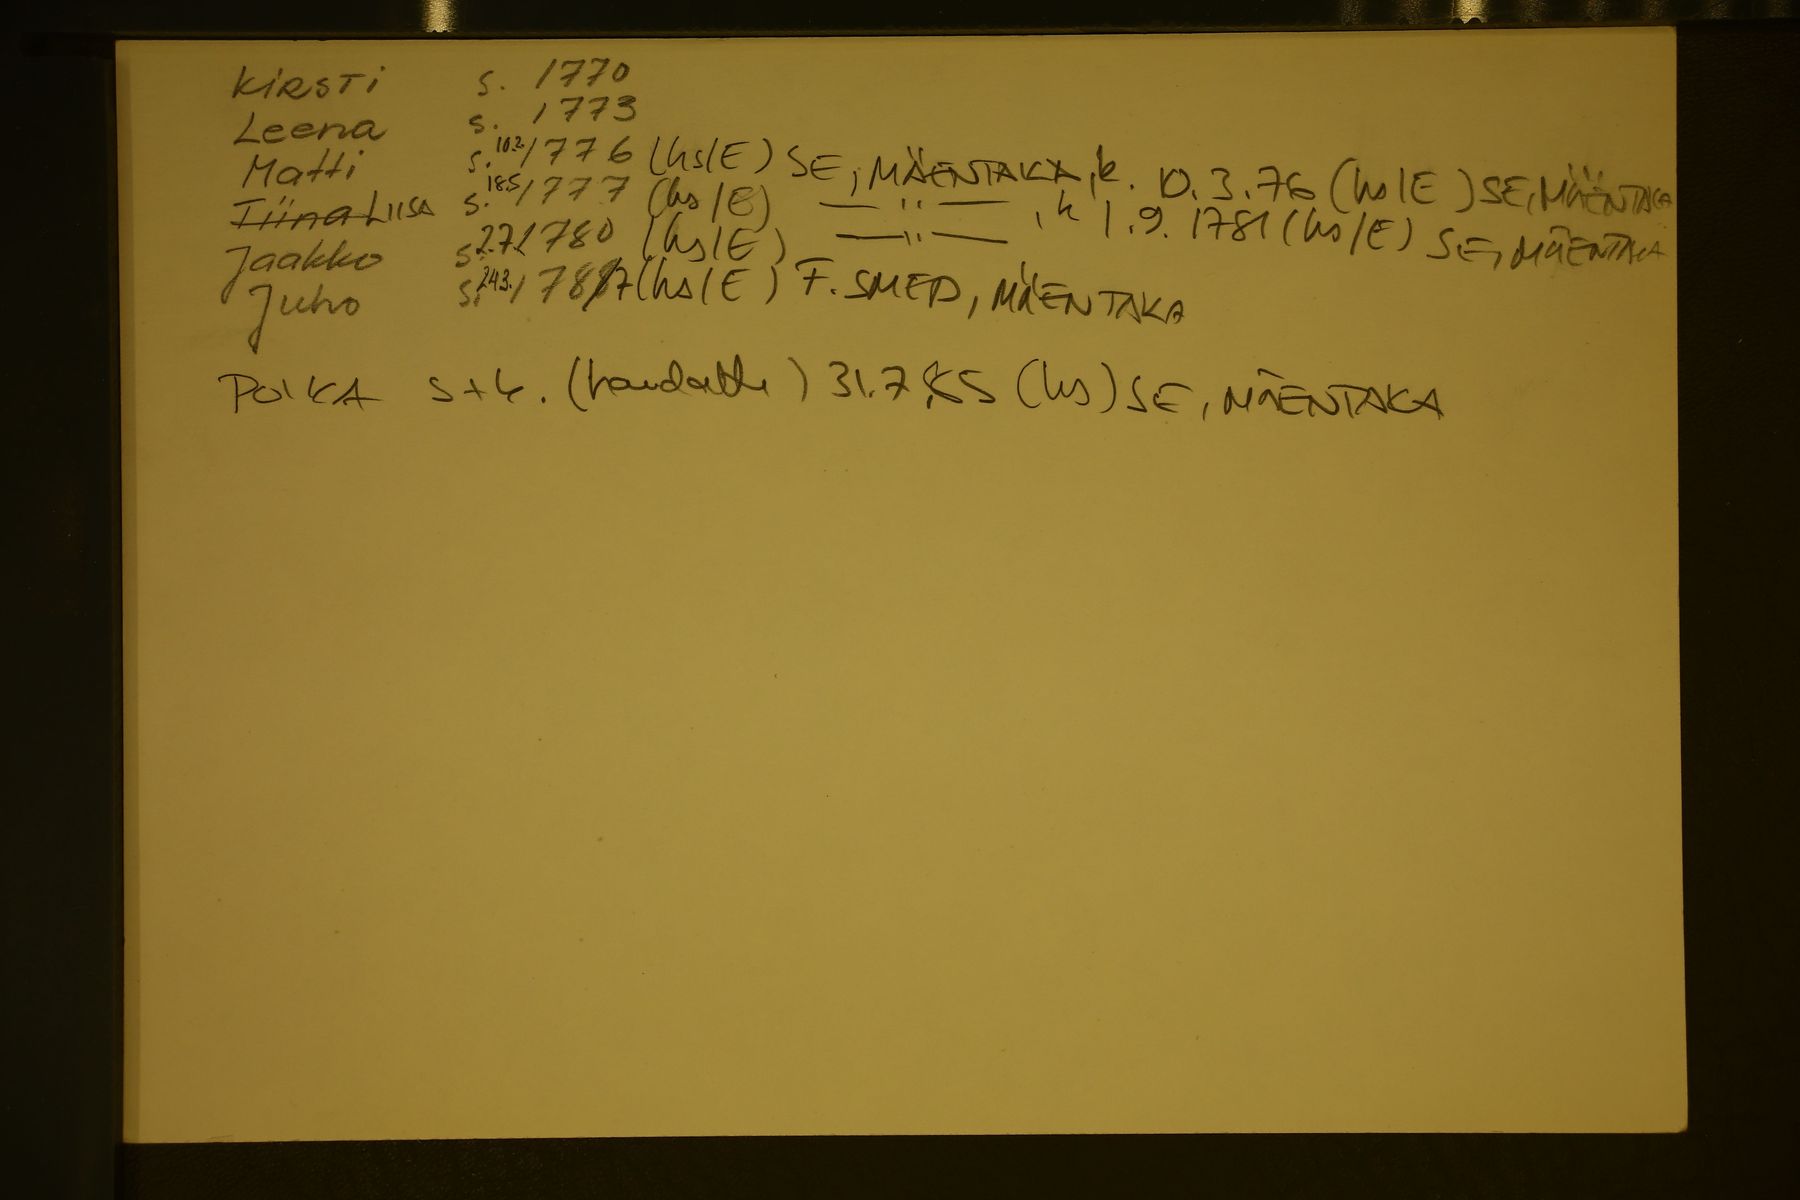 KIRSTI s. 1770
Leena s. 1773
Matti s. 10.2. 1776 (hs/E) SE, MÄENTAKA, k. 10.3.76 (hs/E) SE, MÄENTAKA
Tiina LIISA s. 18.5. 1777 (hs/E) —"— , k 1.9. 1781 (hs/E) SE, MÄENTAKA
Jaakko s. 27. 1780 (hs/E) —"—
Juho s. 24.3. 1787 (hs/E) F. SMED, MÄENTAKA
POIKA s+k. (haudattu) 31.7.85 (hs) SE, MÄENTAKA